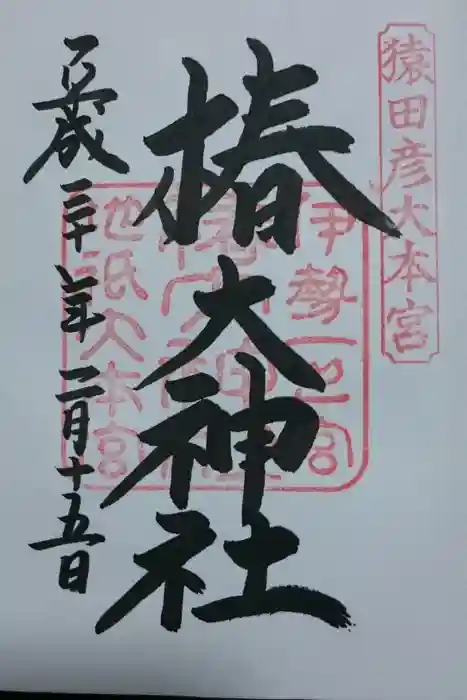 猿田彦大本宮
伊勢一之宮
椿大神社
地祇大本宮
平成三十年二月十五日